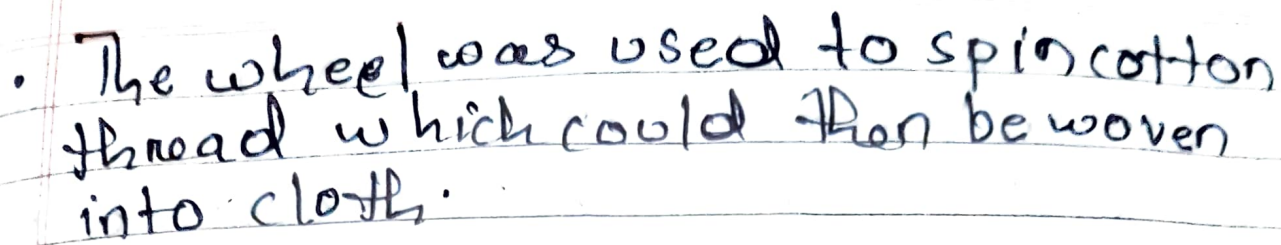 . The wheel was used to spin cotton
thread which could then be woven
into cloth.